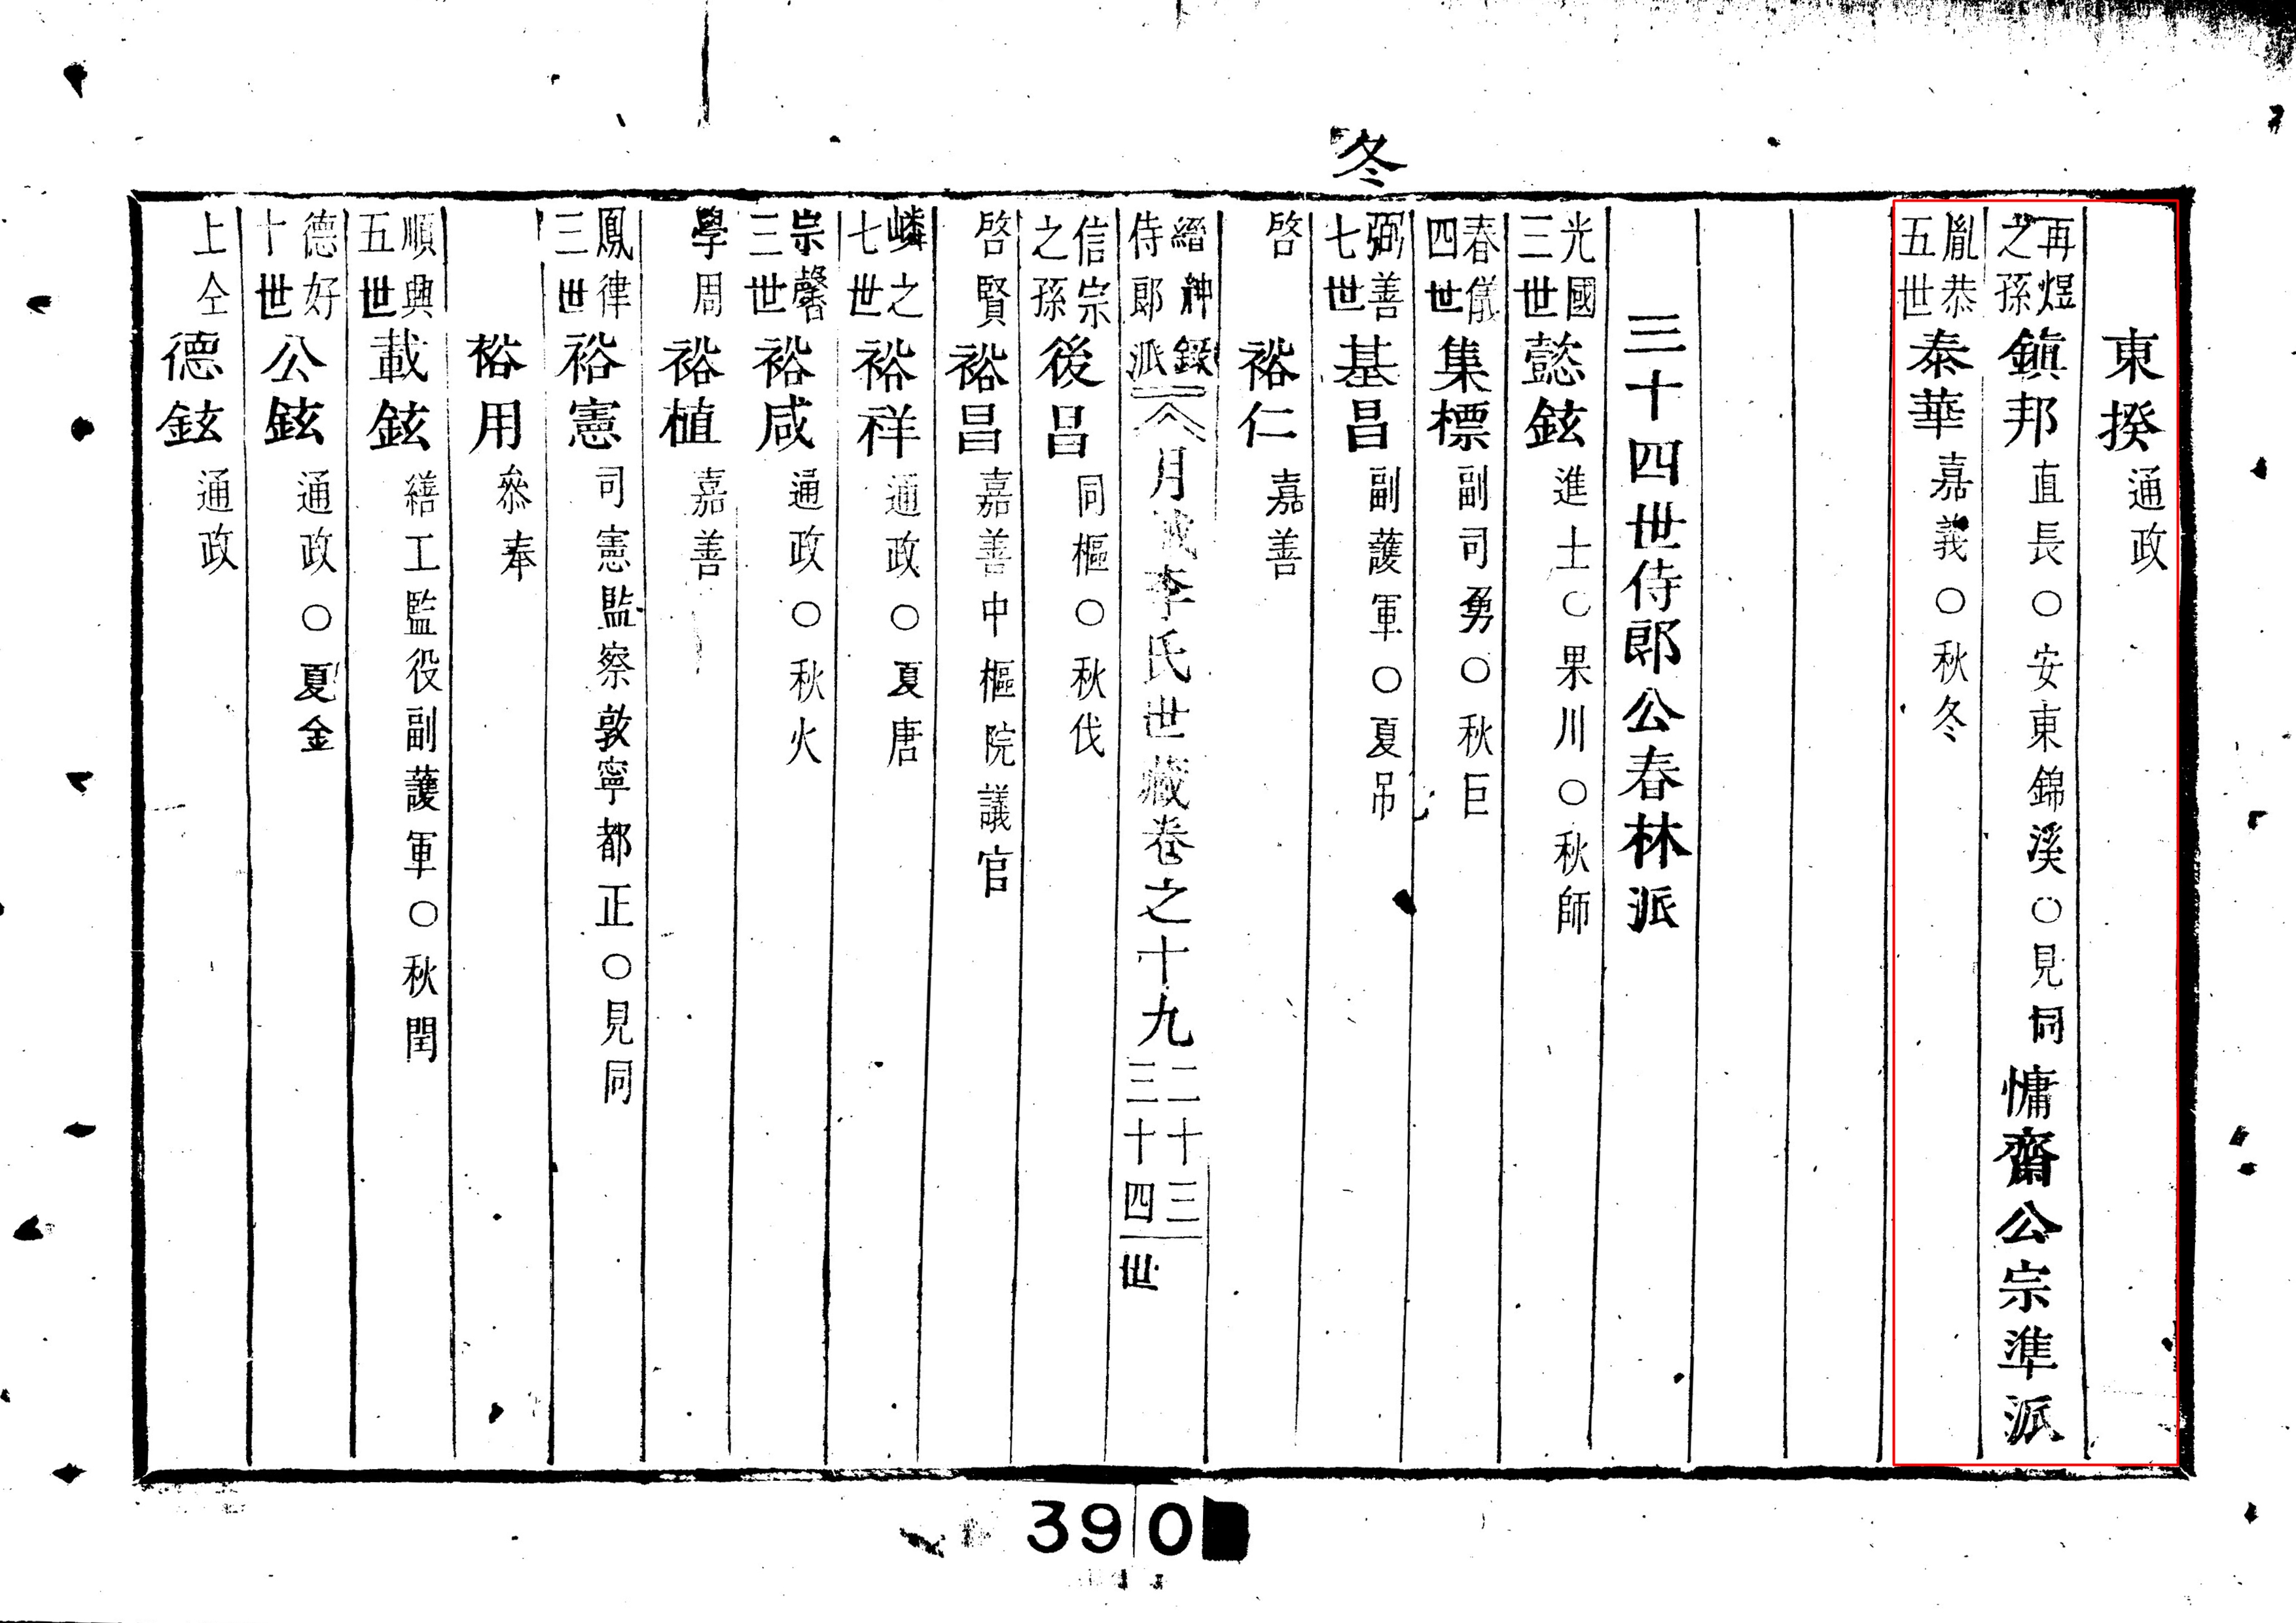 冬
東揆通政
再煜之孫鎭邦直長○安東錦溪○見同慵齋公宗準派
胤恭五世泰華嘉義○秋冬
三十四世侍郎公春林派
光國三世懿鉉進士○果川○秋師
春儀四世集標副司勇○秋巨
弼善七世基昌副護軍○夏吊
啓裕仁嘉善
縉紳錄侍郎派 月城李氏世藏卷之十九 二十三三十四世
信宗之孫後昌同樞○秋伐
啓賢裕昌嘉善中樞院議官
嶙之七世裕祥通政○夏唐
宗馨三世裕咸通政○秋火
學周裕植嘉善
鳳律三世裕憲司憲監察敦寧都正○見同
裕用叅奉
順興五世載鉉繕工監役副護軍○秋閏
德好十世公鉉通政○夏金
上仝德鉉通政
390